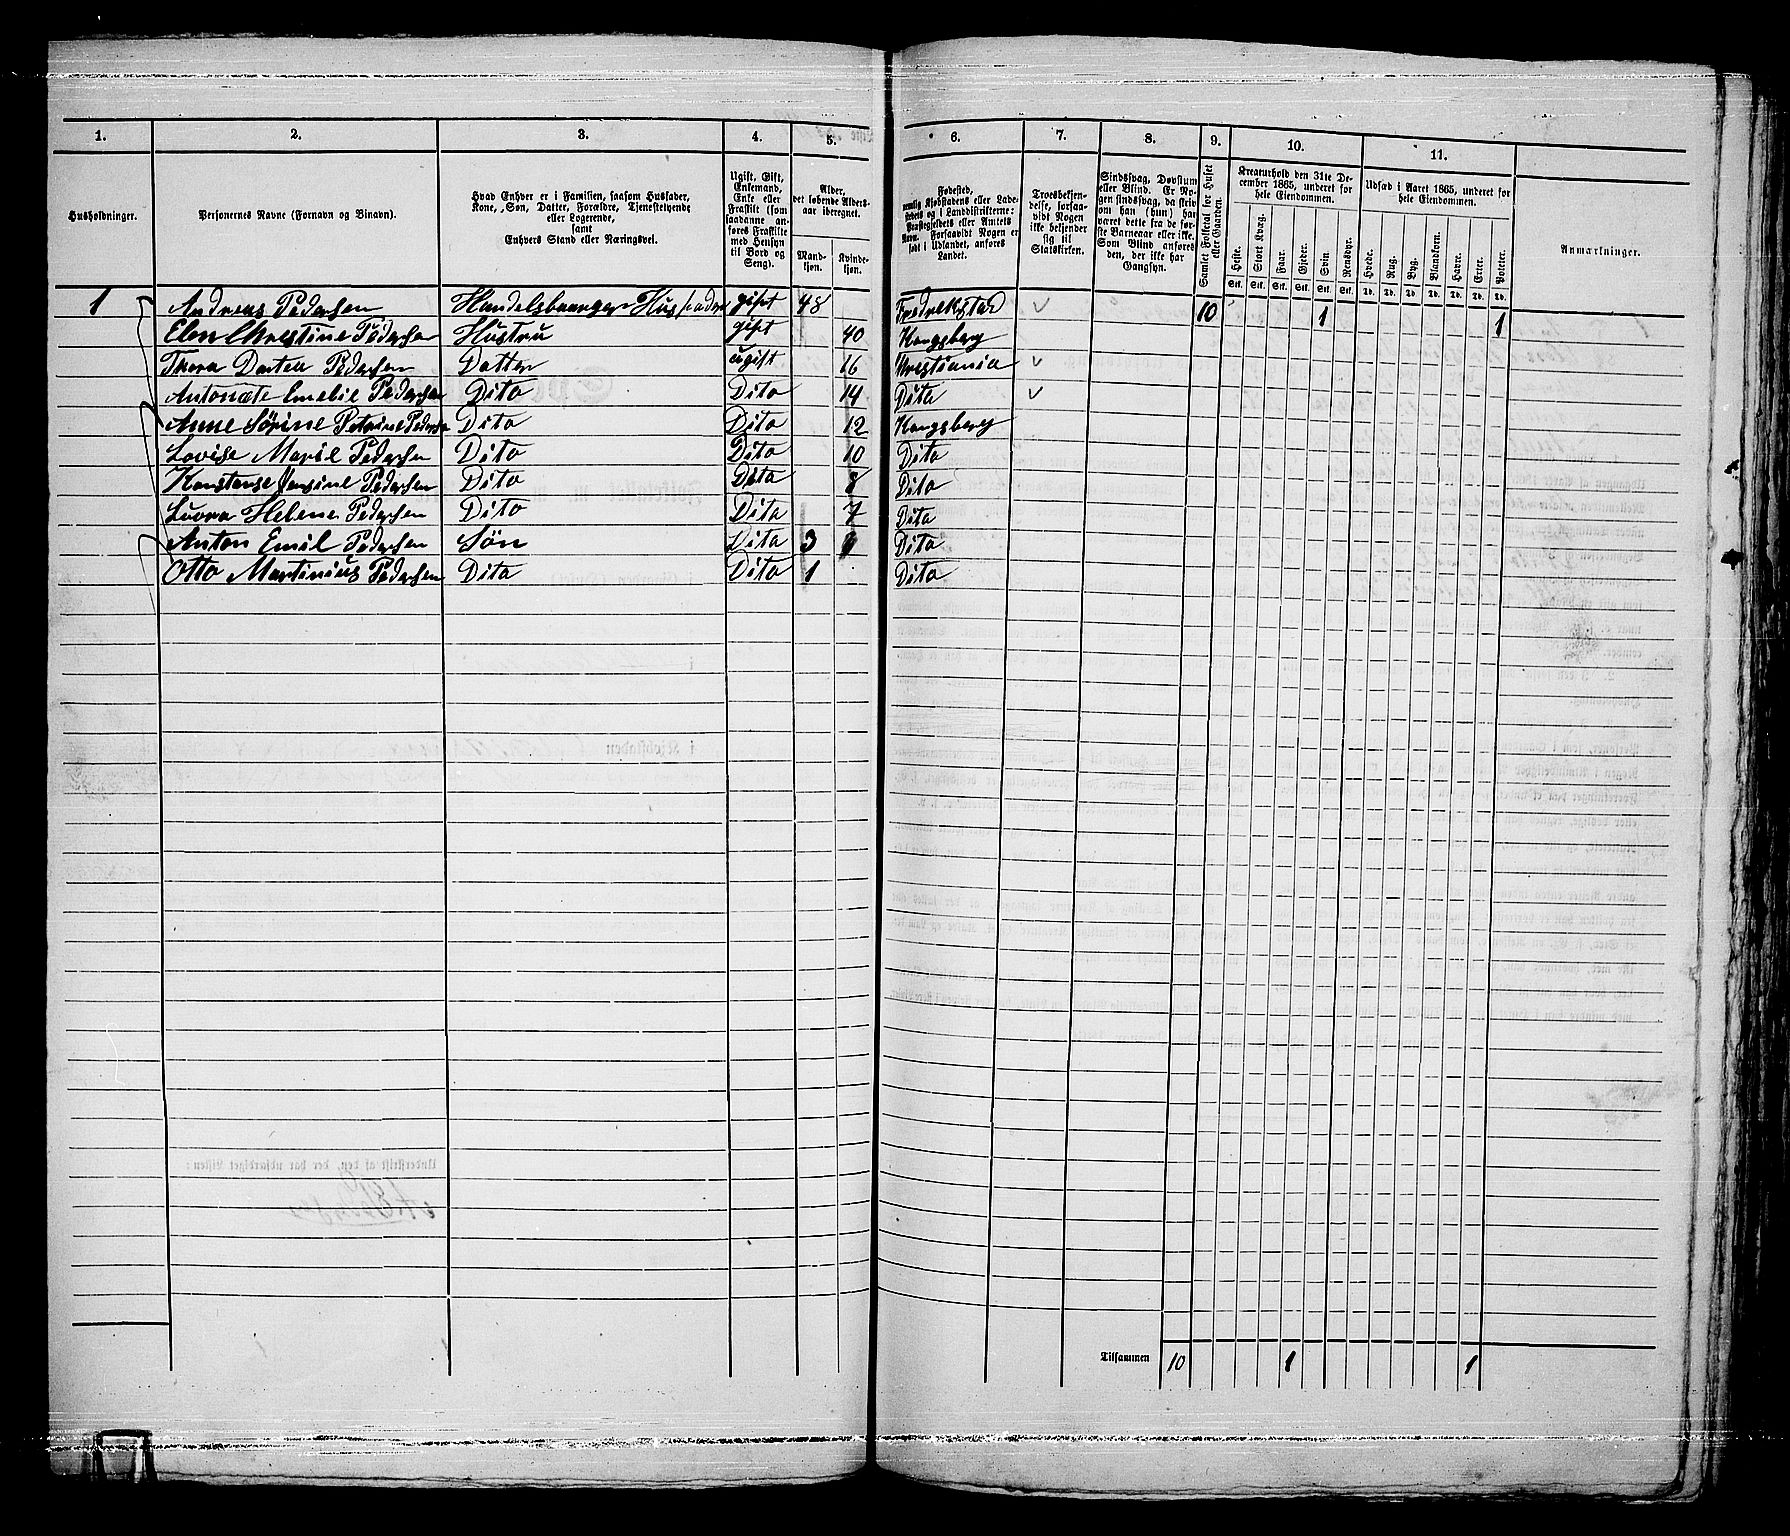 1. 2. 3. 4. 5. 6. 7. 8. 9. 10. 11.
Husholdninger.
Personernes Navne (Fornavn og Binavn).
Hvad Enhver er i Familien, saasom Husfader,
Kone, Søn, Datter, Forældre, Tjenestetyende
eller Logerende,
samt
Enhvers Stand eller Næringsvei.
Ugift, Gift,
Enkemand,
Enke eller
Fraskilt (som
saadanne an-
føres Fraskilte
med Hensyn
til Bord og
Seng).
Alder,
det løbende Alders-
aar iberegnet.
Mand-
kjøn.
Kvinde-
kjøn.
Fødested,
nemlig Kjøbstadens eller Lade-
stedets og i Landdistrikterne:
Præstegjeldets eller Amtets
Navn. Forsaavidt Nogen er
født i Udlandet, anføres
Landet.
Troesbekjen-
delse, forsaa-
vidt Nogen
ikke bekjender
sig til
Statskirken.
Sindssvag, Døvstum
eller Blind. Er No-
gen sindssvag, da skriv
om han (hun) har
været dette fra de før-
ste Barneaar eller ikke.
Som Blind anføres
den, der ikke har
Gangsyn.
Samlet Folketal for Huset
eller Gaarden.
Kreaturhold den 31te De-
cember 1865, underet for
hele Eiendommen.
Heste. Stort Kvæg. Faar. Gjeder. Svin. Rensdyr.
Stk. Stk. Stk. Stk. Stk. Stk.
Udsæd i Aaret 1865, underet for
hele Eiendommen.
Hvede. Rug. Byg. Blandkorn. Havre. Erter. Poteter.
Td. Td. Td. Td. Td. Td. Td.
Anmærkninger.
1 Andreas Pedersen Husfader gift 48 10 1
Elen Chrestine Pedersen Hustru gift 40 Kongsberg 1
Thora Dortea Pedersen Datter ugift 16 Khristiania
Antonæte Emelie Pedersen Dito Dito 14 Dito
Anne Sørine Petrine Pedersen Dito Dito 12 Kongsberg
Lovise Marie Pedersen Dito Dito 10 Dito
Konstanse Jensine Pedersen Dito Dito 8 Dito
Luora Helene Pedersen Dito Dito 7 Dito
Anton Emil Pedersen Søn Dito 3 Dito
Otto Martinius Pedersen Dito Dito 1 Dito
Tilsammen 10 1 1